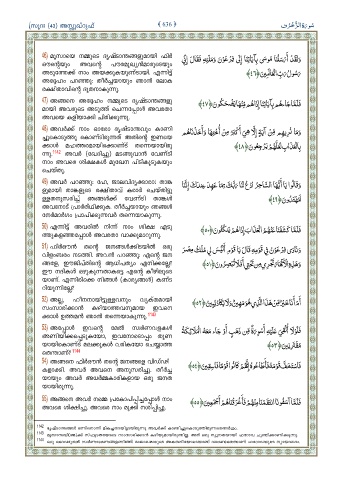 (സൂറഃ (43) അസ്സുഖ്റുഫ്
( 636 )
سورة الزخرف
46) മൂസായെ നമ്മുടെ ദൃഷ്ടാന്തങ്ങളുമായി ഫിർ
ഔന്റെയും അവന്റെ പൗരമുഖ്യന്മാരുടെയും
അടുത്തേക്ക് നാം അയക്കുകയുണ്ടായി. എന്നിട്ട്
അദ്ദേഹം പറഞ്ഞു: തീർച്ചയായും ഞാൻ ലോക
രക്ഷിതാവിന്റെ ദൂതനാകുന്നു.
وَلَقَدْ أَرْسَلْنَا مُوسَىٰ بِآيَاتِنَا إِلَىٰ فِرْعَوْنَ وَمَلَئِهِ فَقَالَ إِنِّي
رَسُولُ رَبِّ الْعَالَمِينَ ﴿٤٦﴾
47) അങ്ങനെ അദ്ദേഹം നമ്മുടെ ദൃഷ്ടാന്തങ്ങളു
മായി അവരുടെ അടുത്ത് ചെന്നപ്പോൾ അവരതാ
അവയെ കളിയാക്കി ചിരിക്കുന്നു.
فَلَمَّا جَاءَهُم بِآيَاتِنَا إِذَا هُم مِّنْهَا يَضْحَكُونَ ﴿٤٧﴾
48) അവർക്ക് നാം ഓരോ ദൃഷ്ടാന്തവും കാണി
ച്ചുകൊടുത്തു കൊണ്ടിരുന്നത് അതിന്റെ ഇണയെ
ക്കാൾ മഹത്തരമായിക്കൊണ്ട് തന്നെയായിരു
ന്നു. അവർ
മടങ്ങുവാൻ വേണ്ടി
നാം അവരെ ശിക്ഷകൾ മുഖേന പിടികൂടുകയും
ചെയ്തു.
وَمَا نُرِيهِم مِّنْ آيَةٍ إِلَّا هِيَ أَكْبَرُ مِنْ أُخْتِهَا وَأَخَذْنَاهُم
بِالْعَذَابِ لَعَلَّهُمْ يَرْجِعُونَ ﴿٤٨﴾
49) അവർ പറഞ്ഞു: ഹേ, ജാലവിദ്യക്കാരാ! താങ്ക
ളുമായി താങ്കളുടെ രക്ഷിതാവ് കരാർ ചെയ്തിട്ടു
ള്ളതനുസരിച്ച് ഞങ്ങൾക്ക് വേണ്ടി താങ്കൾ
അവനോട് പ്രാർത്ഥിക്കുക. തീർച്ചയായും ഞങ്ങൾ
നേർമാർഗം പ്രാപിക്കുന്നവർ തന്നെയാകുന്നു.
وَقَالُوا يَا أَيُّهَا السَّاحِرُ ادْعُ لَنَا رَبَّكَ بِمَا عَهِدَ عِندَكَ إِنَّنَا
لَمُهْتَدُونَ ﴿٤٩﴾
50) എന്നിട്ട് അവരിൽ നിന്ന് നാം ശിക്ഷ എടു
ത്തുകളഞ്ഞപ്പോൾ അവരതാ വാക്കുമാറുന്നു.
فَلَمَّا كَشَفْنَا عَنْهُمُ الْعَذَابَ إِذَا هُمْ يَنكُثُونَ ﴿٥٠﴾
51) ഫിർഔൻ തന്റെ ജനങ്ങൾക്കിടയിൽ ഒരു
വിളംബരം നടത്തി. അവൻ പറഞ്ഞു: എന്റെ ജന
ങ്ങളേ, ഈജിപ്തിന്റെ ആധിപത്യം എനിക്കല്ലേ?
ഈ നദികൾ ഒഴുകുന്നതാകട്ടെ എന്റെ കീഴിലൂടെ
യാണ്. എന്നിരിക്കെ നിങ്ങൾ (കാര്യങ്ങൾ) കണ്ട
റിയുന്നില്ലേ?
وَنَادَىٰ فِرْعَوْنُ فِي قَوْمِهِ قَالَ يَا قَوْمِ أَلَيْسَ لِي مُلْكُ مِصْرَ
وَهَٰذِهِ الْأَنْهَارُ تَجْرِي مِن تَحْتِي أَفَلَا تُبْصِرُونَ ﴿٥١﴾
52) അല്ല, ഹീനനായിട്ടുള്ളവനും വ്യക്തമായി
സംസാരിക്കാൻ കഴിയാത്തവനുമായ ഇവനെ
ക്കാൾ ഉത്തമൻ ഞാൻ തന്നെയാകുന്നു.
أَمْ أَنَا خَيْرٌ مِّنْ هَٰذَا الَّذِي هُوَ مَهِينٌ وَلَا يَكَادُ يُبِينُ ﴿٥٢﴾
53) അപ്പോൾ ഇവന്റെ മേൽ സ്വർണവളകൾ
അണിയിക്കപ്പെടുകയോ, ഇവനോടൊപ്പം തുണ
യായിക്കൊണ്ട് മലക്കുകൾ വരികയോ ചെയ്യാത്ത
തെന്താണ്?
فَلَوْلَا أُلْقِيَ عَلَيْهِ أَسْوِرَةٌ مِّن ذَهَبٍ أَوْ جَاءَ مَعَهُ الْمَلَائِكَةُ
مُقْتَرِنِينَ ﴿٥٣﴾
54) അങ്ങനെ ഫിർഔൻ തന്റെ ജനങ്ങളെ വിഡ്ഢി
കളാക്കി. അവർ അവനെ അനുസരിച്ചു. തീർച്ച
യായും അവർ അധർമ്മകാരികളായ ഒരു ജനത
യായിരുന്നു.
فَاسْتَخَفَّ قَوْمَهُ فَأَطَاعُوهُ إِنَّهُمْ كَانُوا قَوْمًا فَاسِقِينَ ﴿٥٤﴾
55) അങ്ങനെ അവർ നമ്മെ പ്രകോപിപ്പിച്ചപ്പോൾ നാം
അവരെ ശിക്ഷിച്ചു. അവരെ നാം മുക്കി നശിപ്പിച്ചു.
فَلَمَّا آسَفُونَا انتَقَمْنَا مِنْهُمْ فَأَغْرَقْنَاهُمْ أَجْمَعِينَ ﴿٥٥﴾